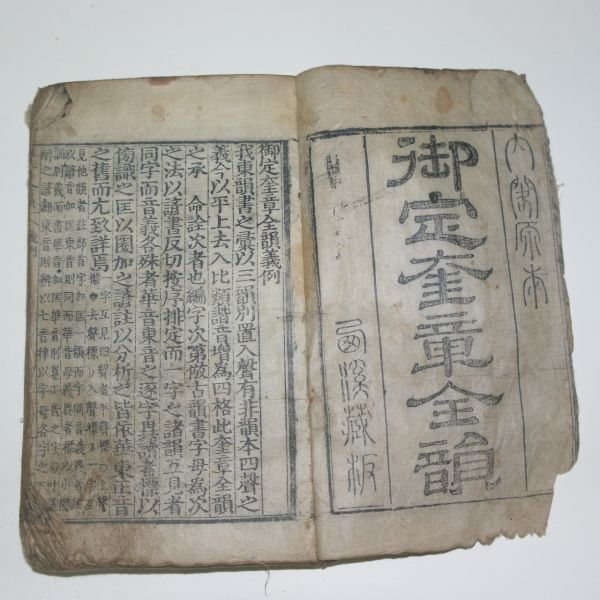 內閣原本
御定奎章全韻
西溪藏板
御定奎章全韻義例
我東韻書之彙以三韻別置入聲有非韻本四聲之
義今以平上去入比類諧音增為四格此奎章全韻
之承 命詮次者也編字次第倣古韻書字母為次
之法以諺書反切按序排定而一字之諸韻互見者
同字而音義各殊者華音東音之逐字再翻者標以
傍識之匡以圈加之諺註以分析之皆依華東正音
之舊而尤致詳焉 一字互見四聲者平聲標○上聲